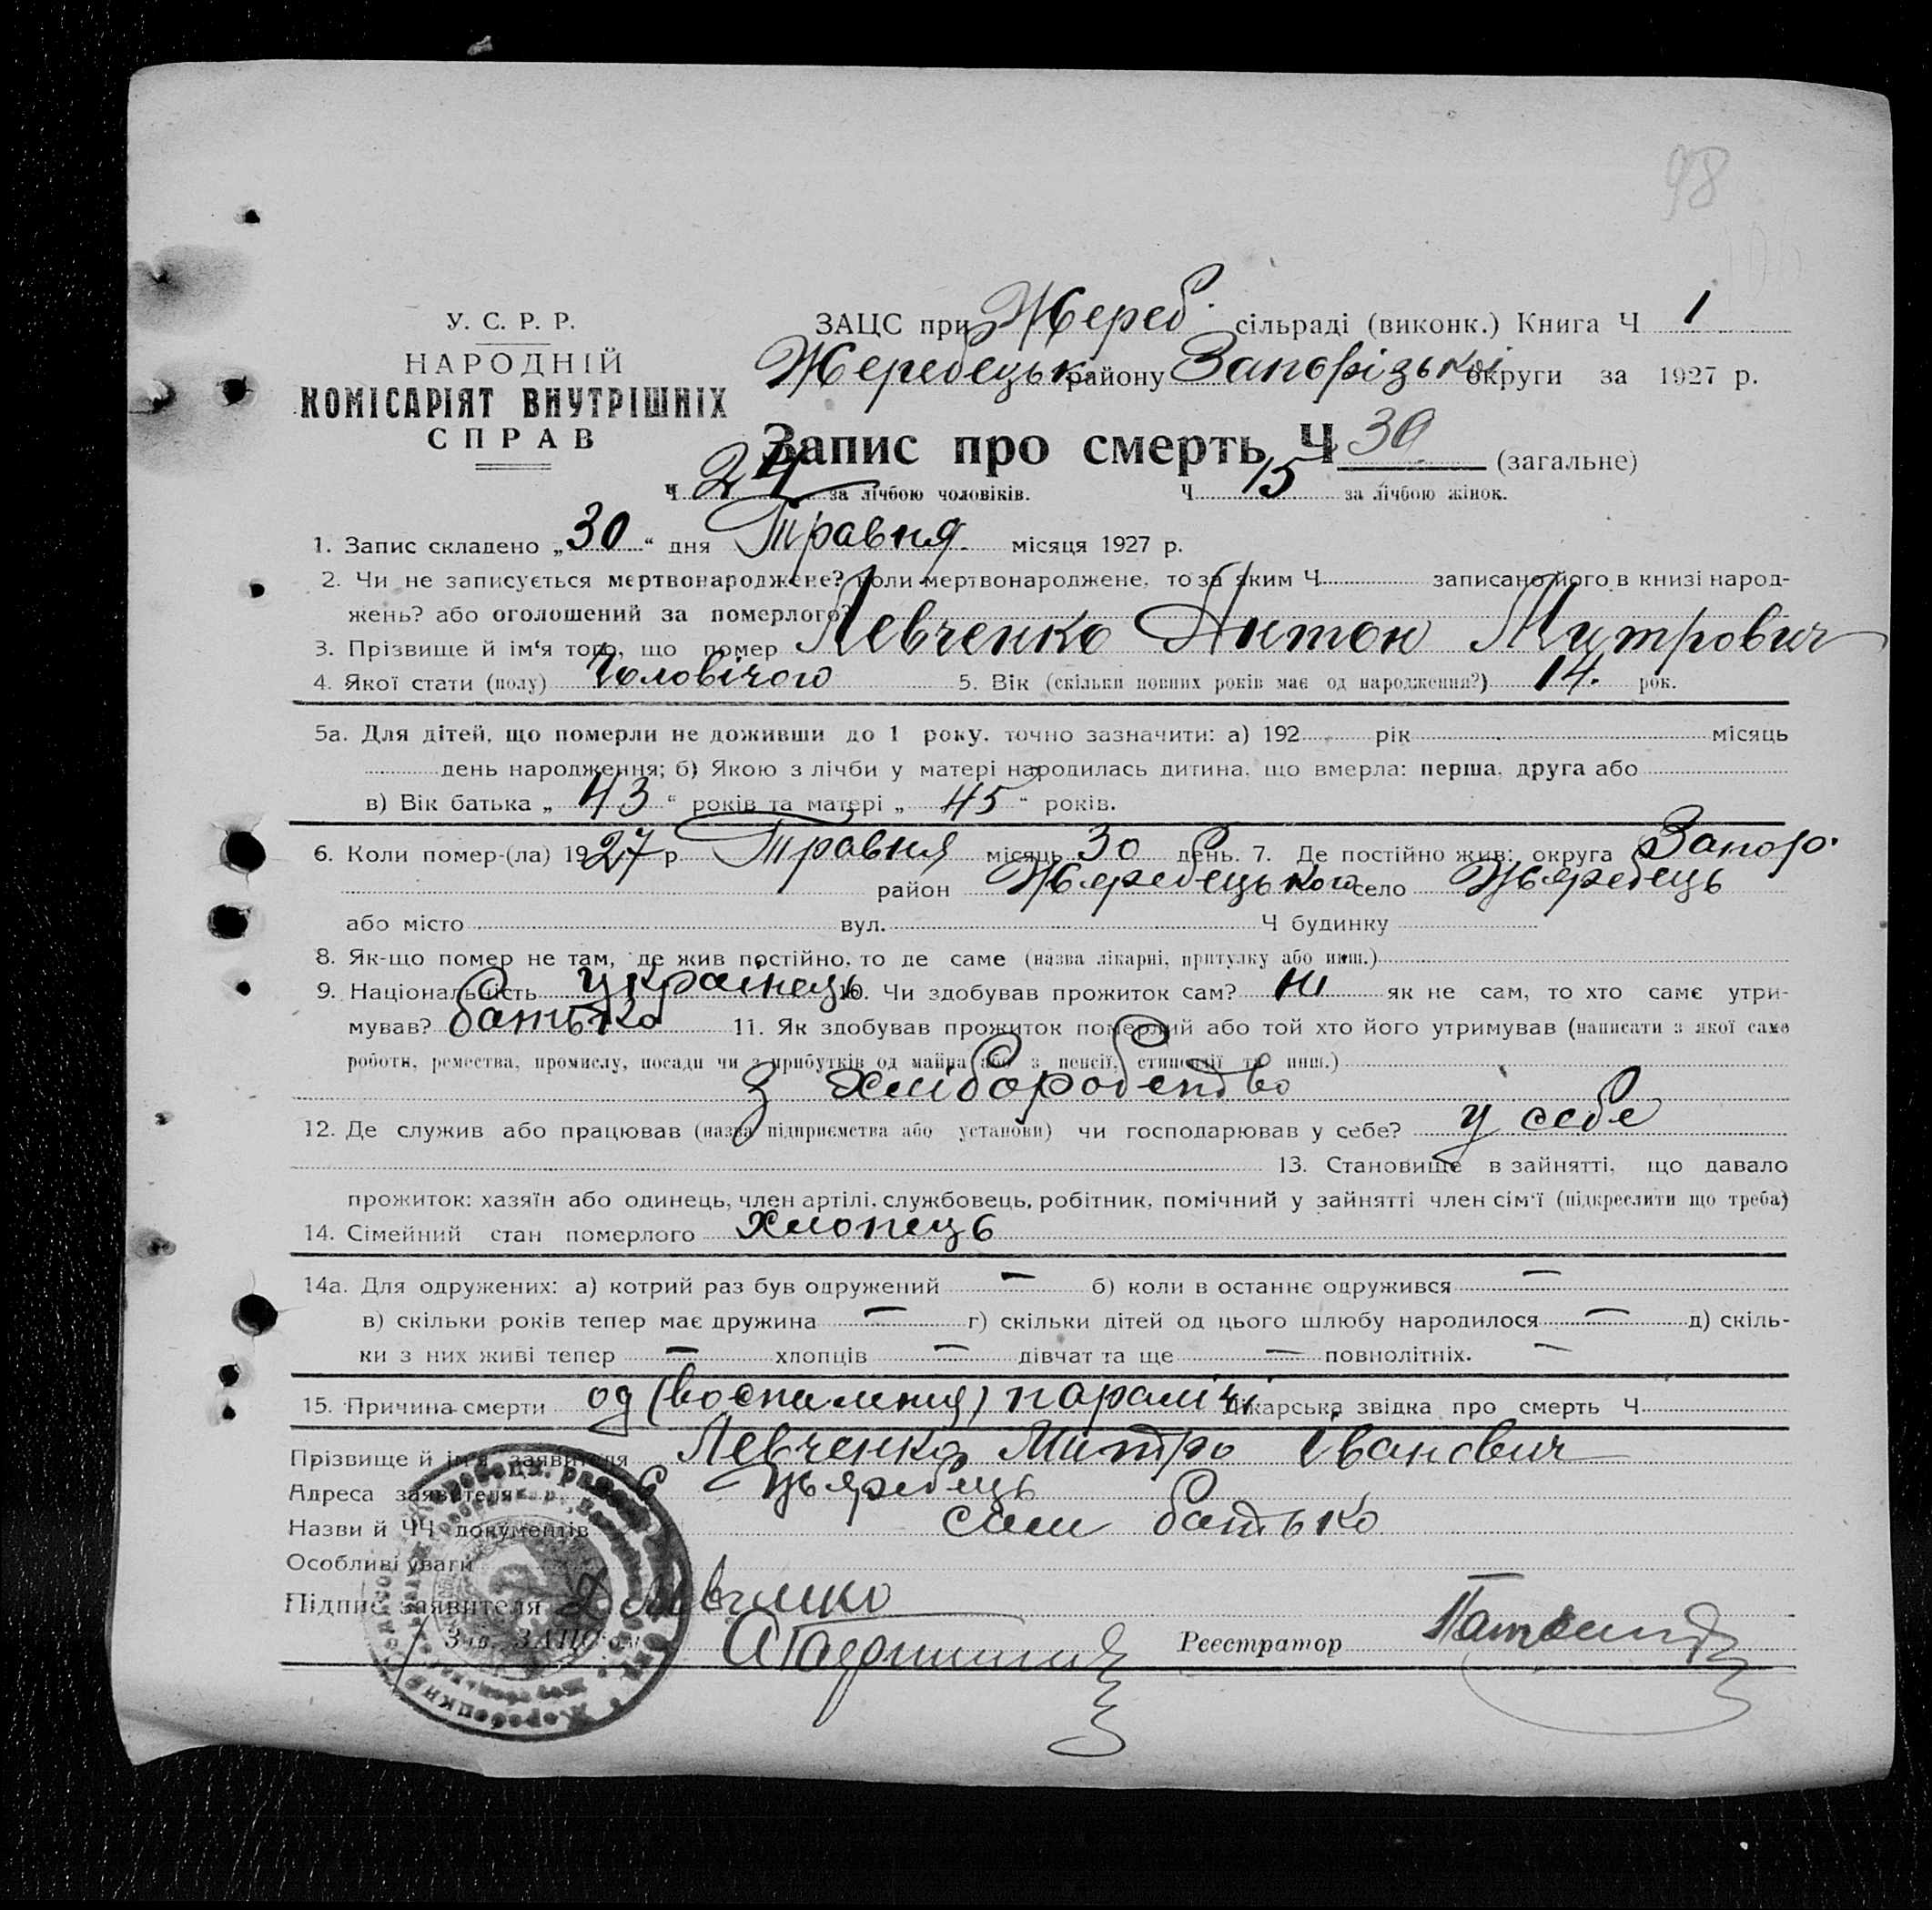 98
У. С. Р. Р.
НАРОДНІЙ
КОМІСАРІЯТ ВНУТРІШНІХ
СПРАВ
ЗАЦС при Жереб. сільраді (виконк.) Книга Ч 1
Жеребецьк району Запорізької округи за 1927 р.
Запис про смерть Ч 39 (загальне)
Ч 24 за лічбою чоловіків. Ч 15 за лічбою жінок.
1. Запис складено „30“ дня Травня місяця 1927 р.
2. Чи не записується мертвонароджене? коли мертвонароджене, то за яким Ч записано його в книзі народ-
жень? або оголошений за померлого?
3. Прізвище й ім‘я того, що помер Левченко Антон Митрович
4. Якої стати (полу) Чоловічого 5. Вік (скільки повних років має од народження?) 14. рок.
5а. Для дітей, що померли не доживши до 1 року, точно зазначити: а) 192 рік місяць
день народження; б) Якою з лічби у матері народилась дитина, що вмерла: перша, друга або
в) Вік батька „43“ років та матері „45“ років.
6. Коли помер-(ла) 1927 р Травня місяць 30 день. 7. Де постійно жив: округа Запор.
район Жеребецького село Жеребець
або місто вул. Ч будинку
8. Як-що помер не там, де жив постійно, то де саме (назва лікарні, притулку або инш.)
9. Національність українець 10. Чи здобував прожиток сам? ні як не сам, то хто саме утри-
мував? батько 11. Як здобував прожиток померлий або той хто його утримував (написати з якої саме
роботи, ремества, промислу, посади чи з прибутків од майна або з пенсії, стипендії та инш.)
З хліборобство
12. Де служив або працював (назва підприємства або установи) чи господарював у себе? у себе
13. Становище в зайнятті, що давало
прожиток: хазяїн або одинець, член артілі, службовець, робітник, помічний у зайнятті член сім‘ї (підкреслити що треба)
14. Сімейний стан померлого хлопець
14а. Для одружених: а) котрий раз був одружений — б) коли в останнє одружився —
в) скільки років тепер має дружина — г) скільки дітей од цього шлюбу народилося — д) скіль-
ки з них живі тепер — хлопців — дівчат та ще — повнолітніх. —
15. Причина смерти од (воспаления) паралічі Лікарська звідка про смерть Ч
Прізвище й ім‘я заявителя Левченко Митро Іванович
Адреса заявителя с Жеребець
Назви й ЧЧ документів сам батько
Особливі уваги
Підпис заявителя Д Левченко
Зав. ЗАЦС'ом Реєстратор